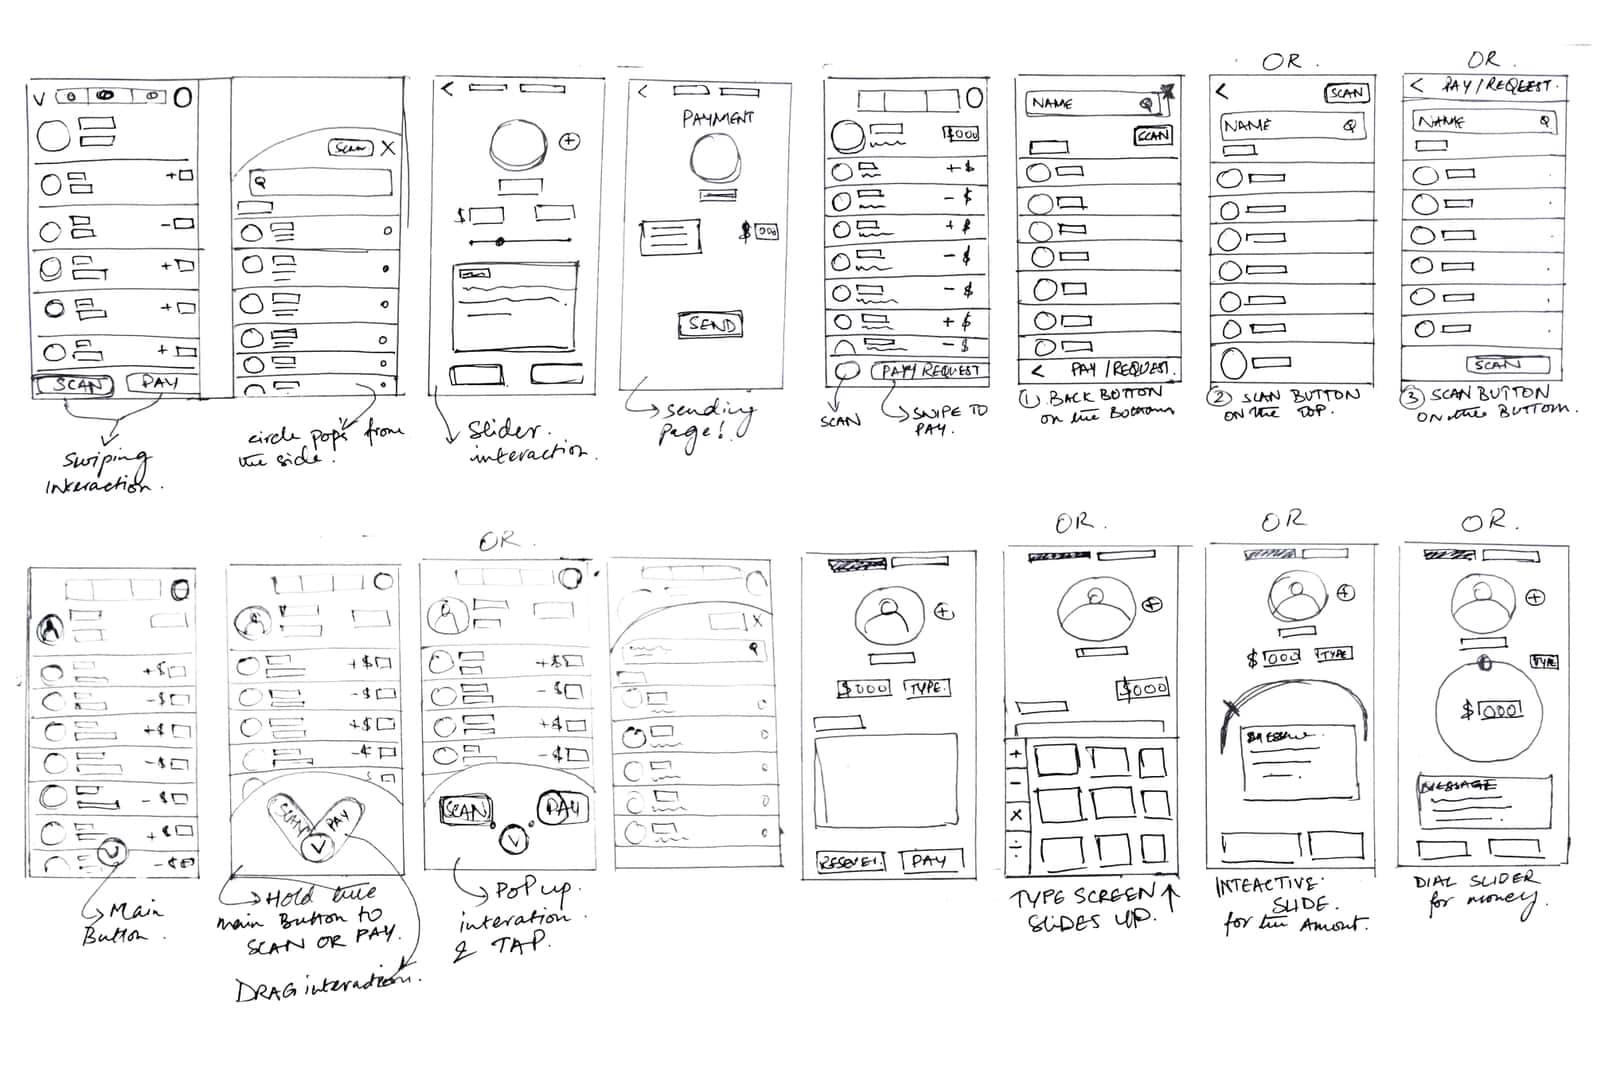 SCAN
PAY
Swiping
Interaction.
Scan X
circle pops from
the side.
$
Slider
interaction.
PAYMENT
$ 000
SEND
Sending
page!
$000
+ $
- $
+ $
- $
- $
+ $
- $
PAY/REQUEST
SCAN
SWIPE TO
PAY.
NAME
SCAN
< PAY/REQUEST.
1 BACK BOTTON
on the Bottom
OR.
SCAN
NAME
2 SCAN BUTTON
ON the TOP.
OR.
< PAY/REQEEST.
NAME
SCAN
3 SCAN BUTTON
ON the BUTTOM.
+$
-$
+$
-$
-$
+$
-$
Main
Button.
+$
-$
+$
-$
$
SCAN
PAY
Hold the
main Button to
SCAN OR PAY.
DRAG interaction.
OR.
+$
-$
+$
-$
SCAN
PAY
POP up
interation
& TAP.
X
$000 TYPE.
PAY
OR.
$000
+
-
X
÷
TYPE SCREEN ↑
SLIDES UP.
OR
$ 000 TYPE
INTEACTIVE
SLIDE.
for the Amount.
OR.
TYPE
$ 000
MESSAGE
DIAL SLIDER
for money.